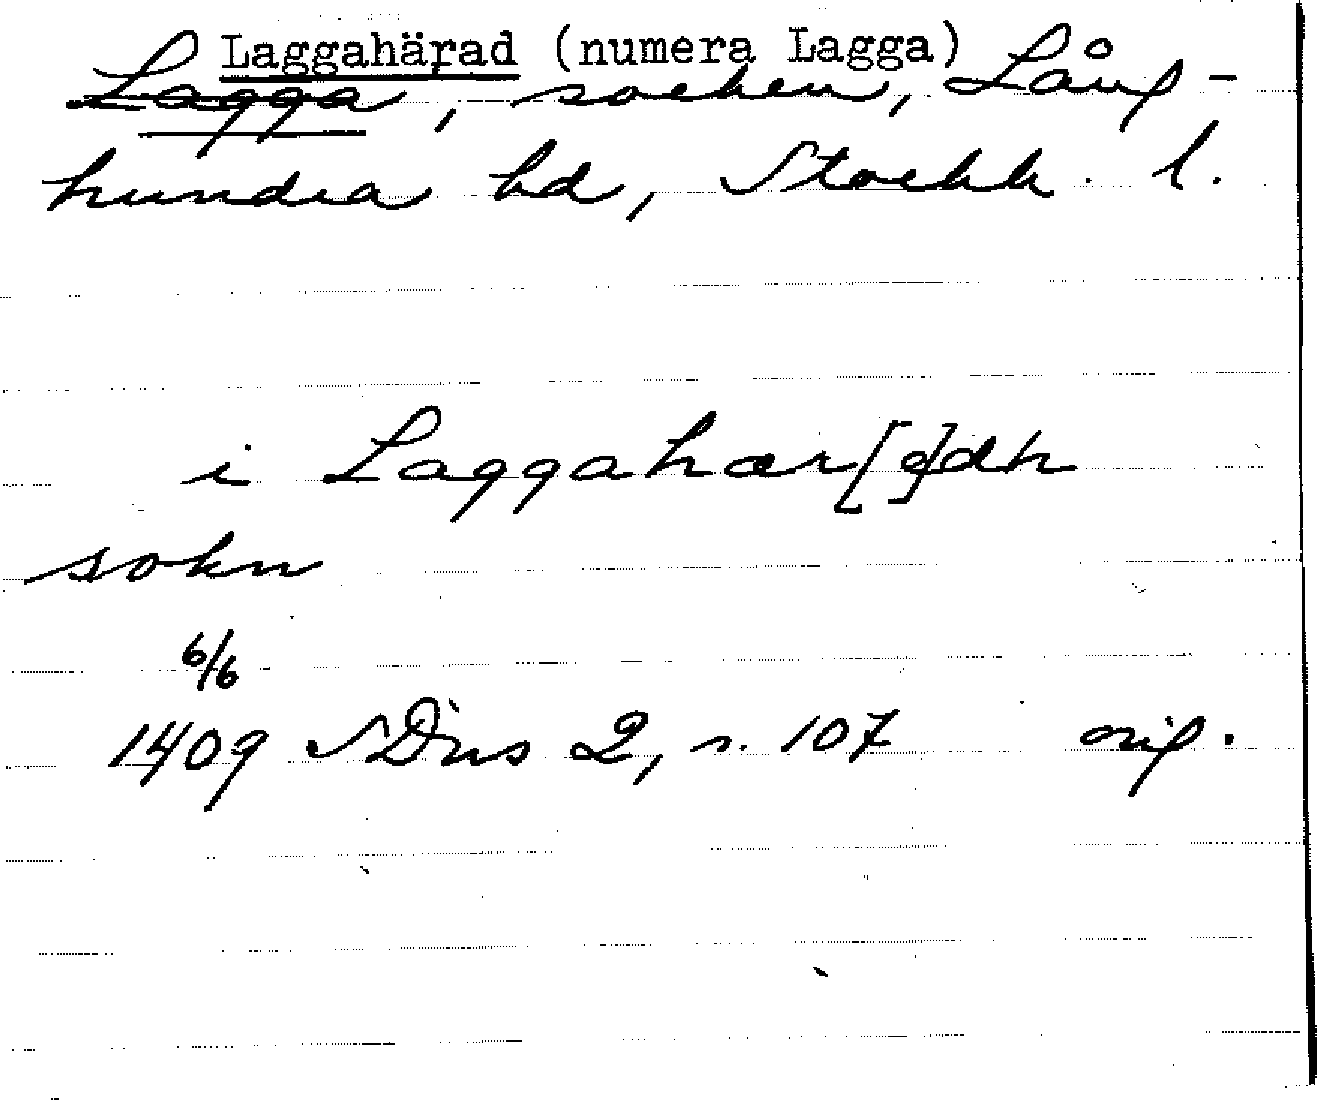 Laggahärad (numera Lagga)
Lagga, socken, Lång-
hundra hd, Stockh. l.
i Laggahær[e]dh
sokn
6/6
1409 SDns 2, s. 107 orig.